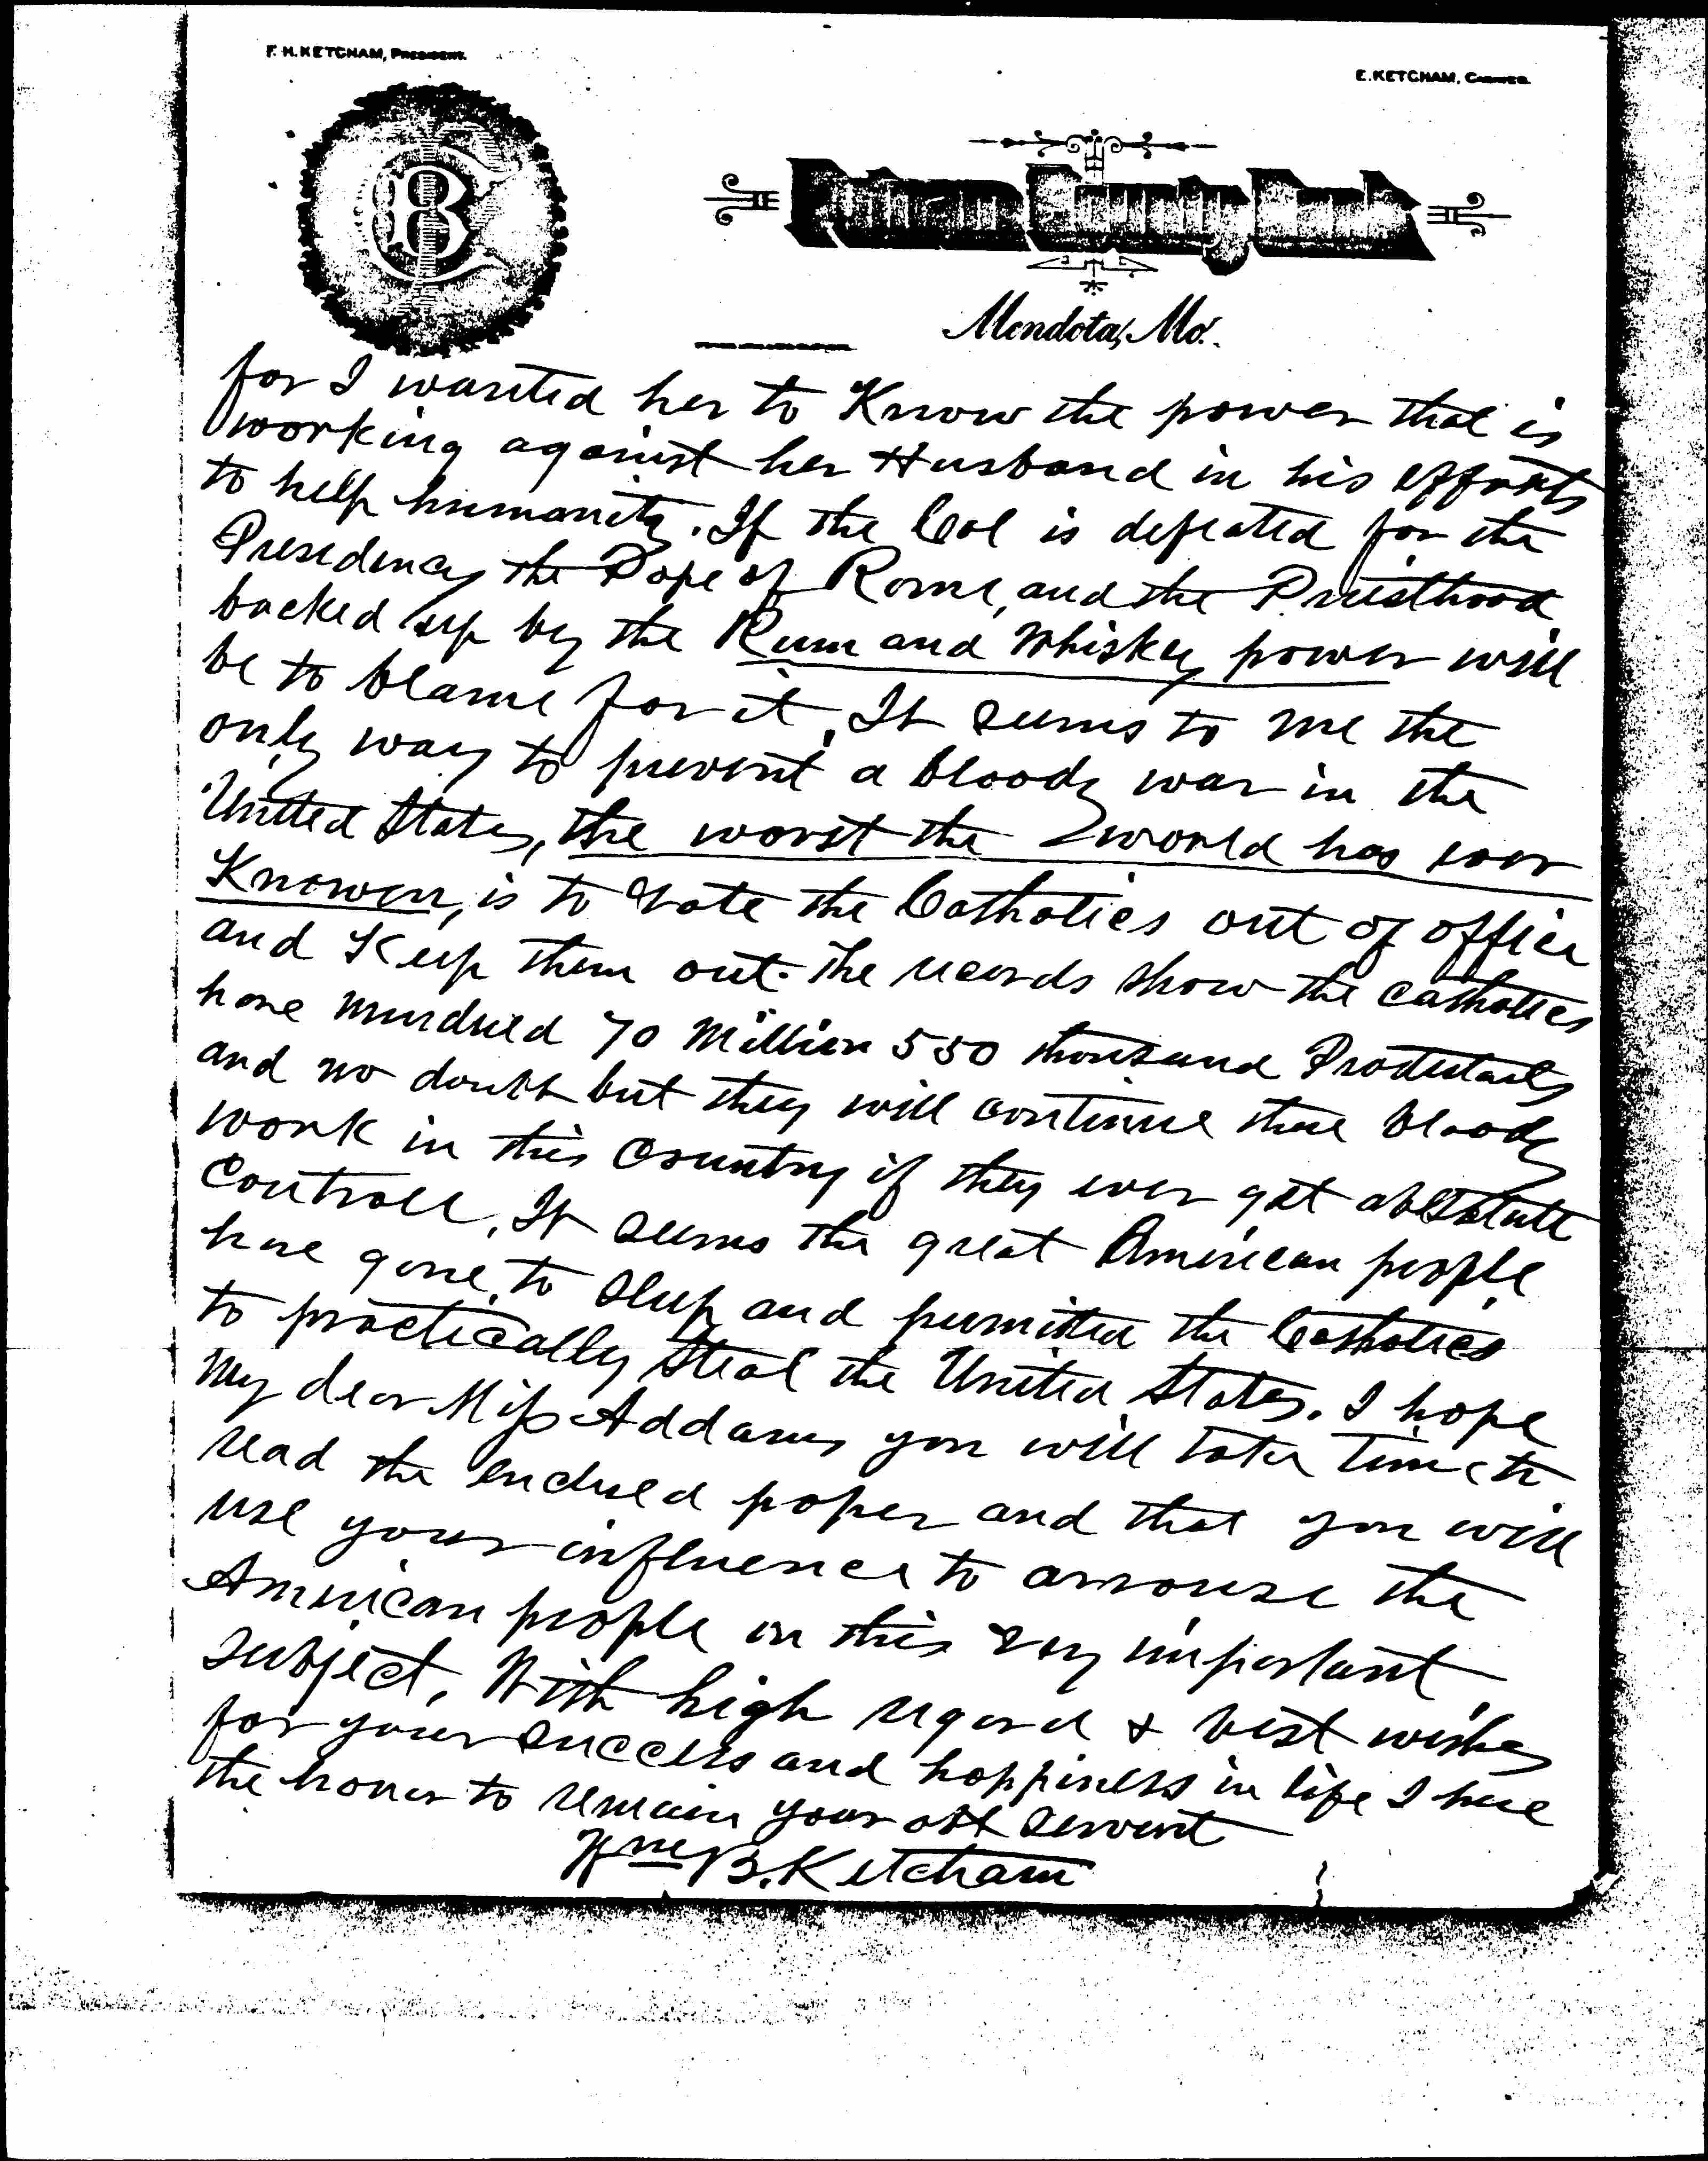 F. H. KETCHAM, PRESIDENT.
E. KETCHAM, CASHIER.
CB
Putnam County Bank
Mendota, Mo.
for I wanted her to Know the power that is
working against her Husband in his efforts
to help humanity. If the Col is defeated for the
Presidency the Pope of Rome, and the Priesthood
backed up by the Rum and Whiskey power will
be to blame for it, It seems to me the
only way to prevent a bloody war in the
United States, the worst the world has ever
Knowen, is to Vote the Catholics out of office
and Keep them out. The records show the Catholics
have murdured 70 Million 550 thousand Protestants
and no doubt but they will continue thee bloody
work in this Country if they ever get absolute
Controll, It seems the great American people
have gone to sleep and permitted the Catholics
to practically steal the United States. I hope
my dear Miss Addams you will take time to
read the enclosed paper and that you will
use your influence to arrouse the
American people on this very important
subject, With high regard & best wishes
for your success and happiness in life I have
the honor to remain your obt servent
Wm B. Ketcham